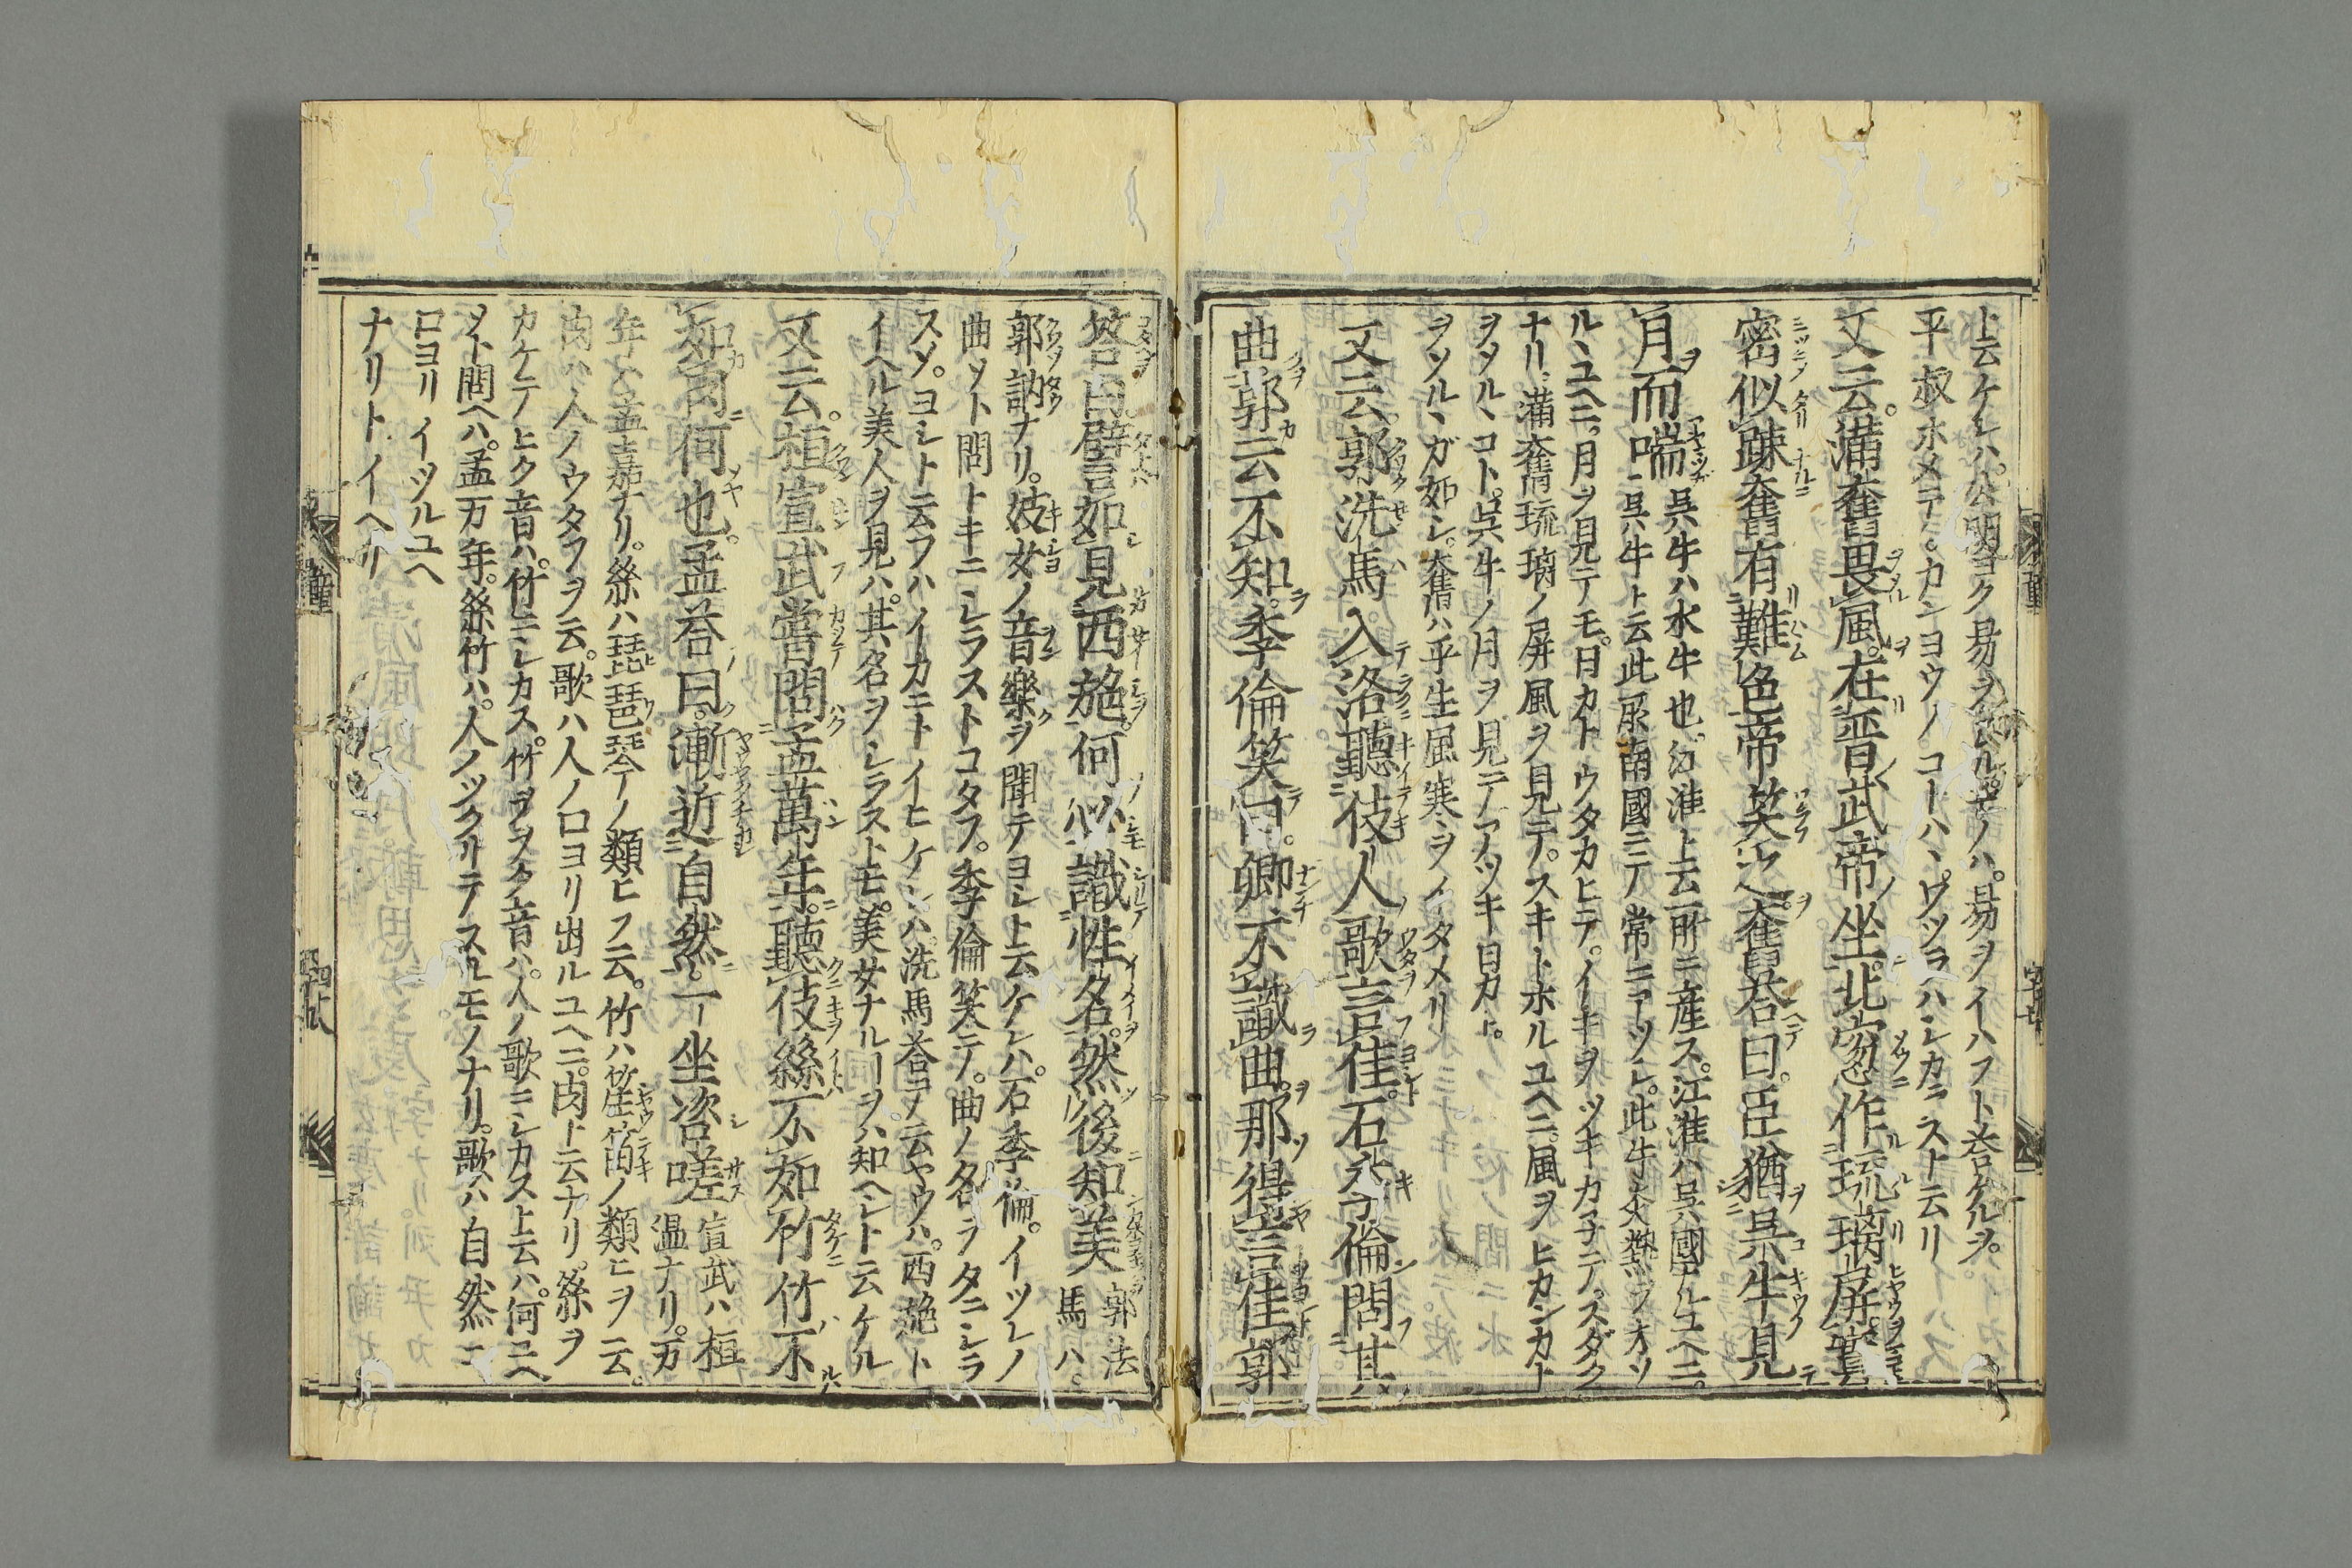 ト云ケレハ公明ヨク易ヲシルモノハ。易ヲイハフト荅ケルヲ。
平叔ホメテ。カンヨウノコーハ、ワツラハシカラスト云リ
又云。滿奮畏風。在晋武帝坐。北窓作琉璃屏。實
密似踈。奮有難色。帝笑之。奮荅曰。臣猶呉牛見
月而喘
呉牛ハ水牛也。江淮ト云所ニ産ス。江淮ハ呉國ナルユヘニ。
呉ハ牛ト云此 南國ニテ常ニアツシ。此牛 熱ヲオソ
ル、ユヘニ。月ヲ見テモ。日カトウタカヒテ。イキヲツキカネテ。スダク
ナリ。滿奮琉璃ノ屏風ヲ見テ。スキトホルユヘニ。風ヲヒカンカト
ヲソル、コト。呉牛ノ月ヲ見テアツキ日カト。
ヲソル、ガ如シ。奮ハ平生風寒ヲイタメリ
又云。郭洗馬入洛聽伎人歌言佳。石季倫問其
曲。郭云不知。季倫笑曰。卿不識曲。那得言佳。郭
荅曰。譬如見西施。何必識姓名。然後知美
郭洗馬ハ
郭訥ナリ。妓女ノ音樂ヲ聞テヨシト云ケレハ。石季倫。イツレノ
曲ソト問トキニシラストコタフ。季倫笑テ。曲ノ名ヲタニシラ
スソ。ヨシト云フハイカニトイヒケレハ。洗馬荅テ云ヤウハ。西施ト
イヘル美人ヲ見ハ。其名ヲシラストモ。美女ナルーヲハ知ヘシト云ケル
又云。桓宣武嘗問孟萬年。聽伎絲不如竹竹不
如肉何也。孟荅曰。漸近自然。一坐咨嗟
宣武ハ桓
温ナリ。万
年ハ孟嘉ナリ。絲ハ琵琶琴ノ類ヒヲ云。竹ハ笙笛ノ類ヒヲ云。
肉ハ人ノウタフヲ云。歌ハ人ノ口ヨリ出ルユヘニ。肉ト云ナリ。絲ヲ
カケテヒク音ハ。竹ニシカス。竹ヲフク音ハ。人ノ歌ニシカスト云ハ。何ユヘ
ソト問ヘハ。孟万年。絲竹ハ。人ノツクリテスルモノナリ。歌ハ自然ニ
口ヨリイツルユヘ
ナリトイヘリ